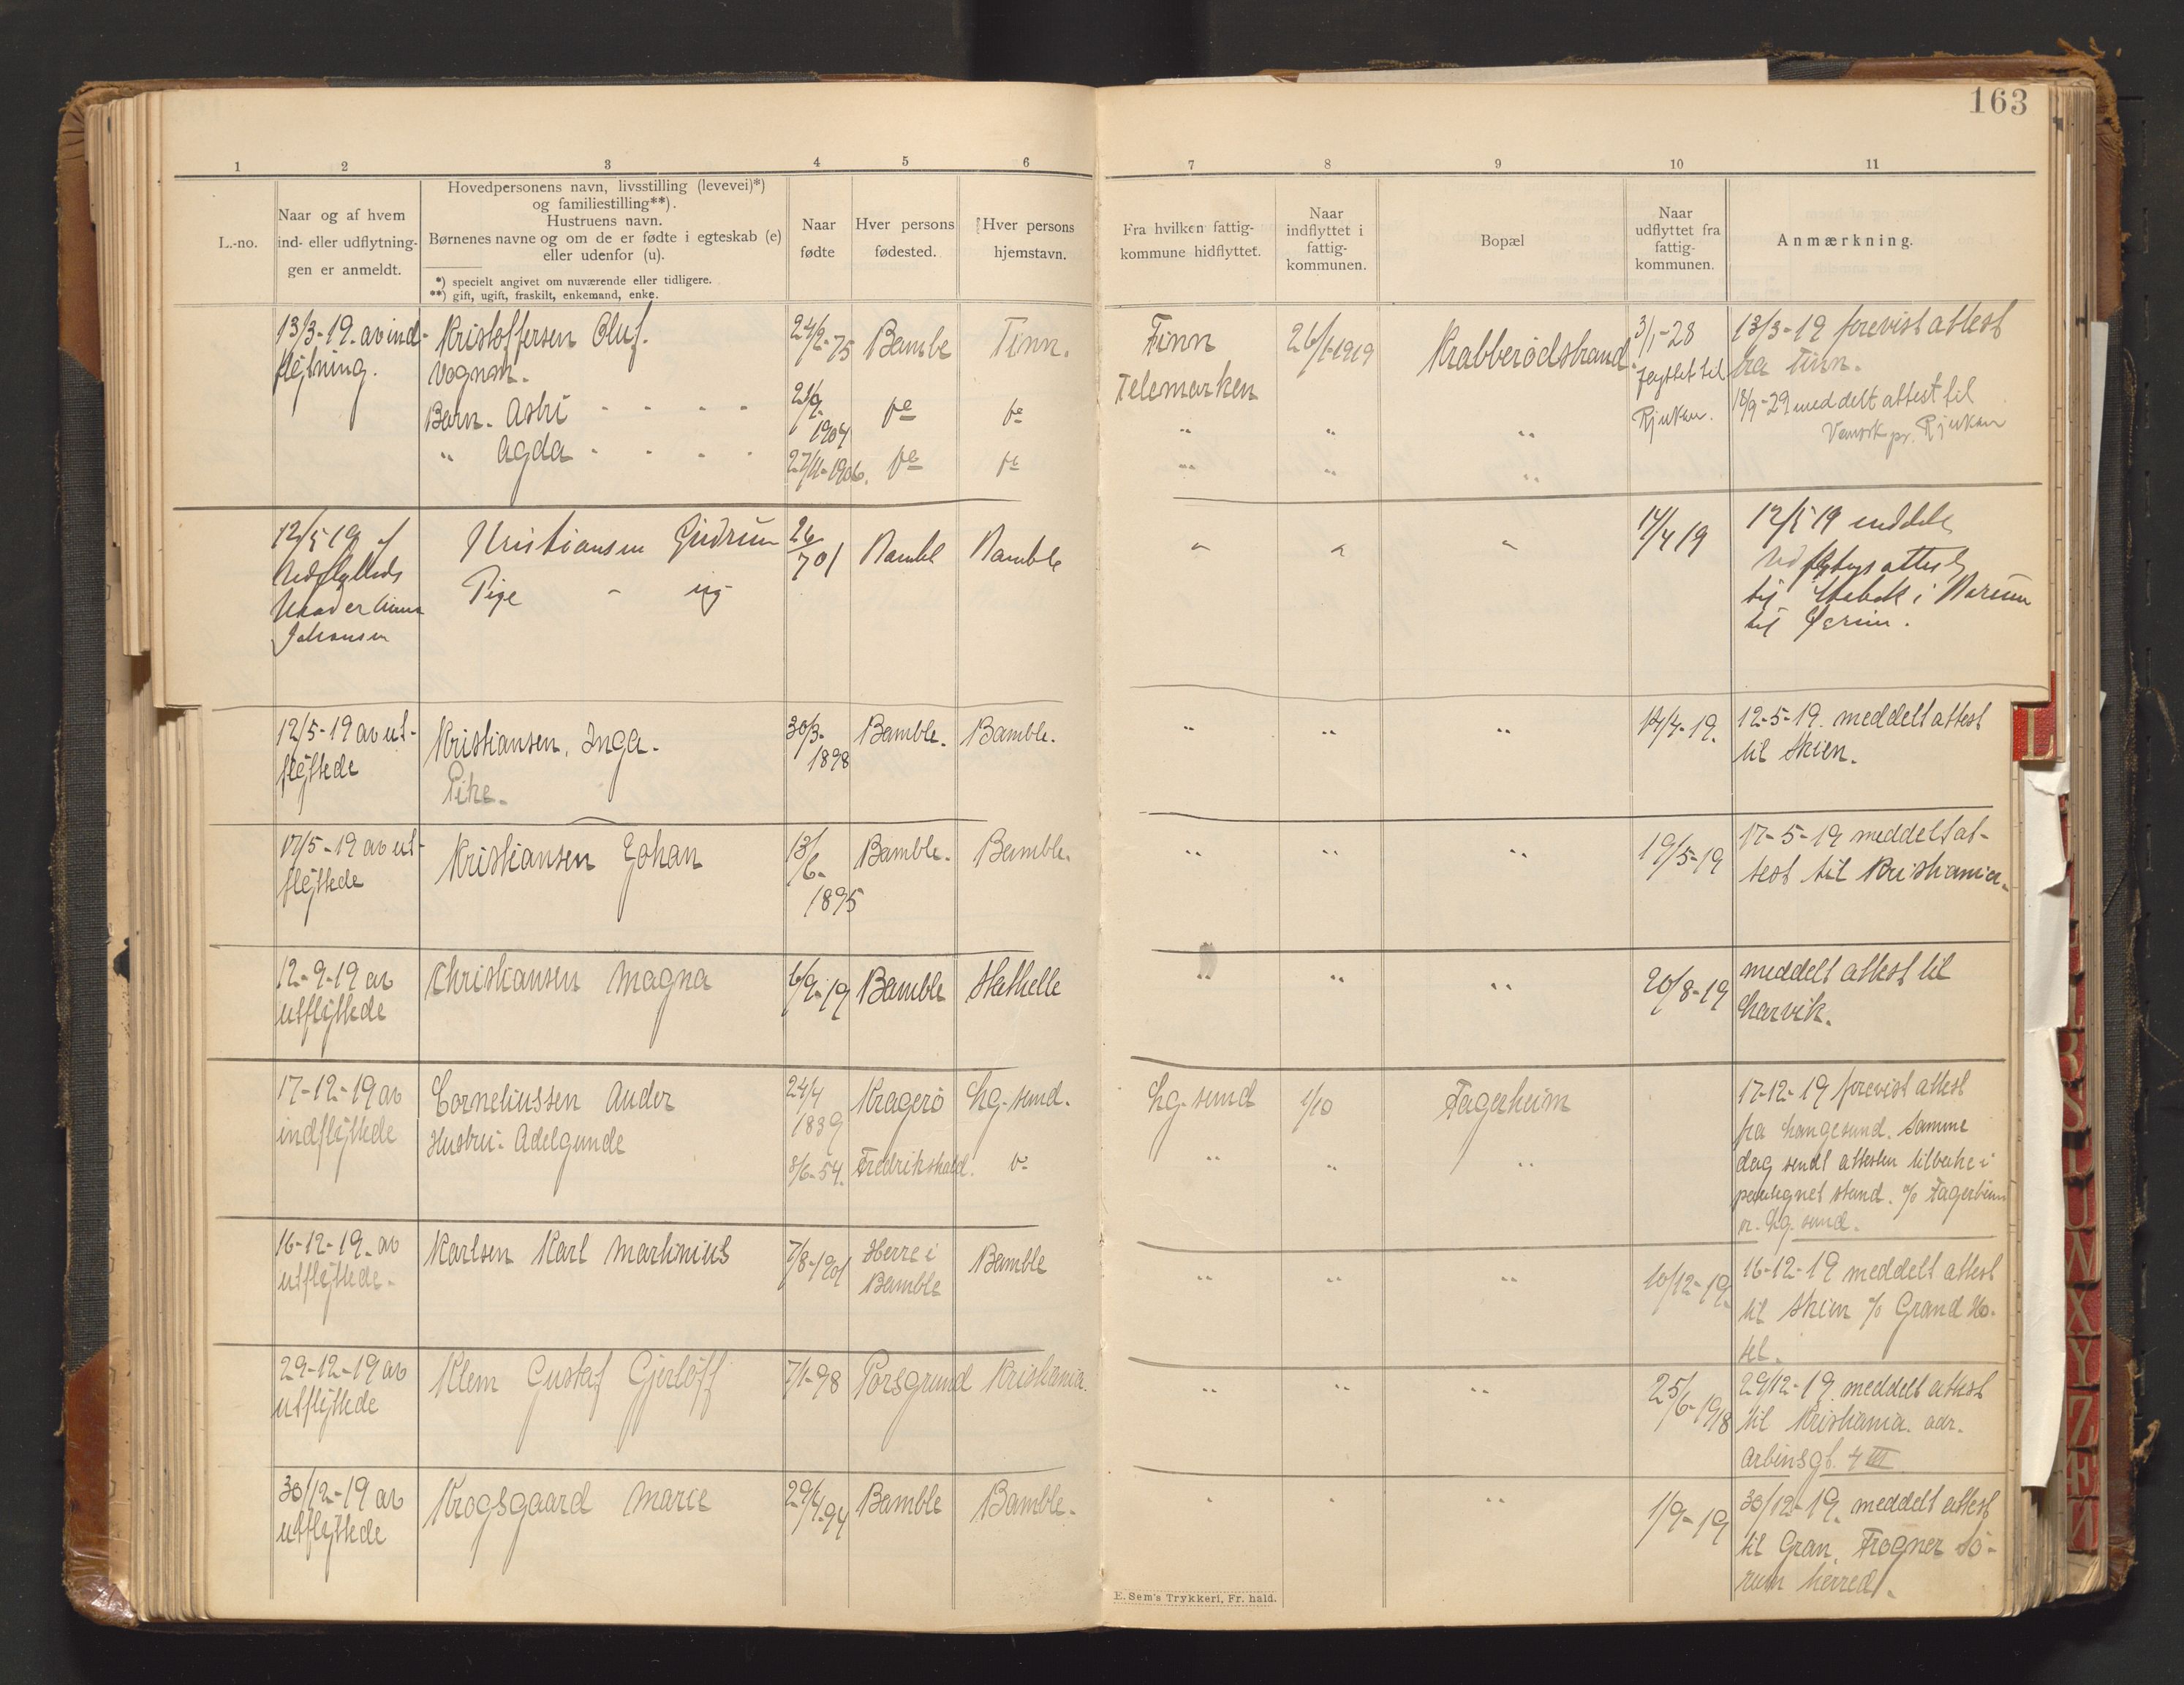 163
1 2 3 4 5 6 7 8 9 10 11
L.-no.
Naar og af hvem
ind- eller udflytnin-
gen er anmeldt.
Hovedpersonens navn, livsstilling (levevei)*)
og familiestilling**).
Hustruens navn.
Børnenes navne og om de er fødte i egteskab (e)
eller udenfor (u).
*) specielt angivet om nuværende eller tidligere.
**) gift, ugift, fraskilt, enkemand, enke.
Naar
fødte
Hver persons
fødested.
Hver persons
hjemstavn.
Fra hvilken fattig-
kommune hidflyttet.
Naar
indflyttet i
fattig-
kommunen.
Bopæl
Naar
udflyttet fra
fattig-
kommunen.
Anmærkning.
13/3-19. av ind-
flytning.
Kristoffersen Oluf.
Vognm.
Barn. Astri
" Agda
24/2-75
21/9-
1904
27/11-1906.
Bamble
do
do
Tinn.
do
do
Tinn
Telemarken
"
"
26/1-1919
"
"
Krabberødstrand.
"
"
3/1-28
flyttet til
Rjukan.
13/3-19 forevist attest
fra Tinn.
18/9-29 meddelt attest til
Vemork pr. Rjukan
12/5 19 af
Udflyttede
Johansen
Kristiansen Gudrun
Pige - ug
26
7 01
Bamble
Bamble
" " "
14/4 19
12/5 19 meddelt
Udflytngsattest
til Stabæk i Bærum
12/5-19 av ut-
flyttede
Kristiansen, Inga.
Pike.
30/3-
1898
Bamble.
Bamble.
" " "
14/4-19.
12-5-19. meddelt attest
til Skien.
17/5-19 av ut-
flyttede
Kristiansen Johan
13/
6-
1895
Bamble.
Bamble.
" " "
19/5-19
17-5-19 meddelt at-
test til Kristiania.
12-9-19 av
utflyttede
Christiansen Magna
6/9-19
Bamble
Stathelle
" " "
20/8-19
meddelt attest til
Larvik.
17-12-19 av
indflyttede
Corneliussen Ander
Hustru: Adelgunde
24/4
1839
8/6-54.
Kragerø
Fredrikshald.
Lg.-sund.
do
Lg.-sund
"
1/10
"
Fagerheim
"
17-12-19 forevist attest
fra Langesund. Samme
dag sendt attesten tilbake i
paategnet stand. c/o Fagerheim
pr. Lg. sund.
16-12-19. av
utflyttede.
Karlsen Karl Martinius
7/8-1901
Herre i
Bamble
Bamble
" " "
10/12-19.
16-12-19 meddelt attest
til Skien c/o Grand Ho-
tel.
29-12-19 av
utflyttede
Klem Gustaf Gjerløff
7/1-98
Porsgrund
Kristiania.
" " "
25/6-1918
29/12-19. meddelt attest
til Kristiania. adr.
Arbinsgt. 4 III
30/12-19 av
utflyttede
Krogsgaard Marie
29/4-94
Bamble
Bamble.
" " "
1/9-19
30/12-19. meddelt attest
til Gran, Frogner Sø-
rum herred.
E. Sem's Trykkeri, Fr. hald.
L
R
S
T
U
W
X
Y
Z
Æ
Ø